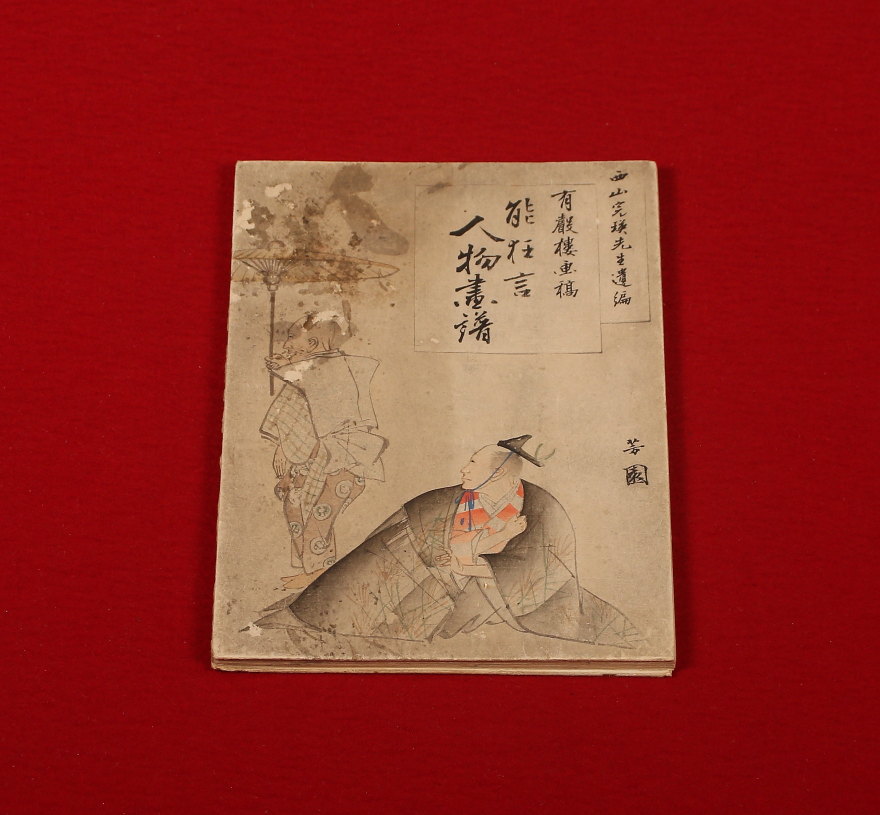 西山完瑛先生遺編
有觳樓画稿
能狂言
人物畫譜
芳園